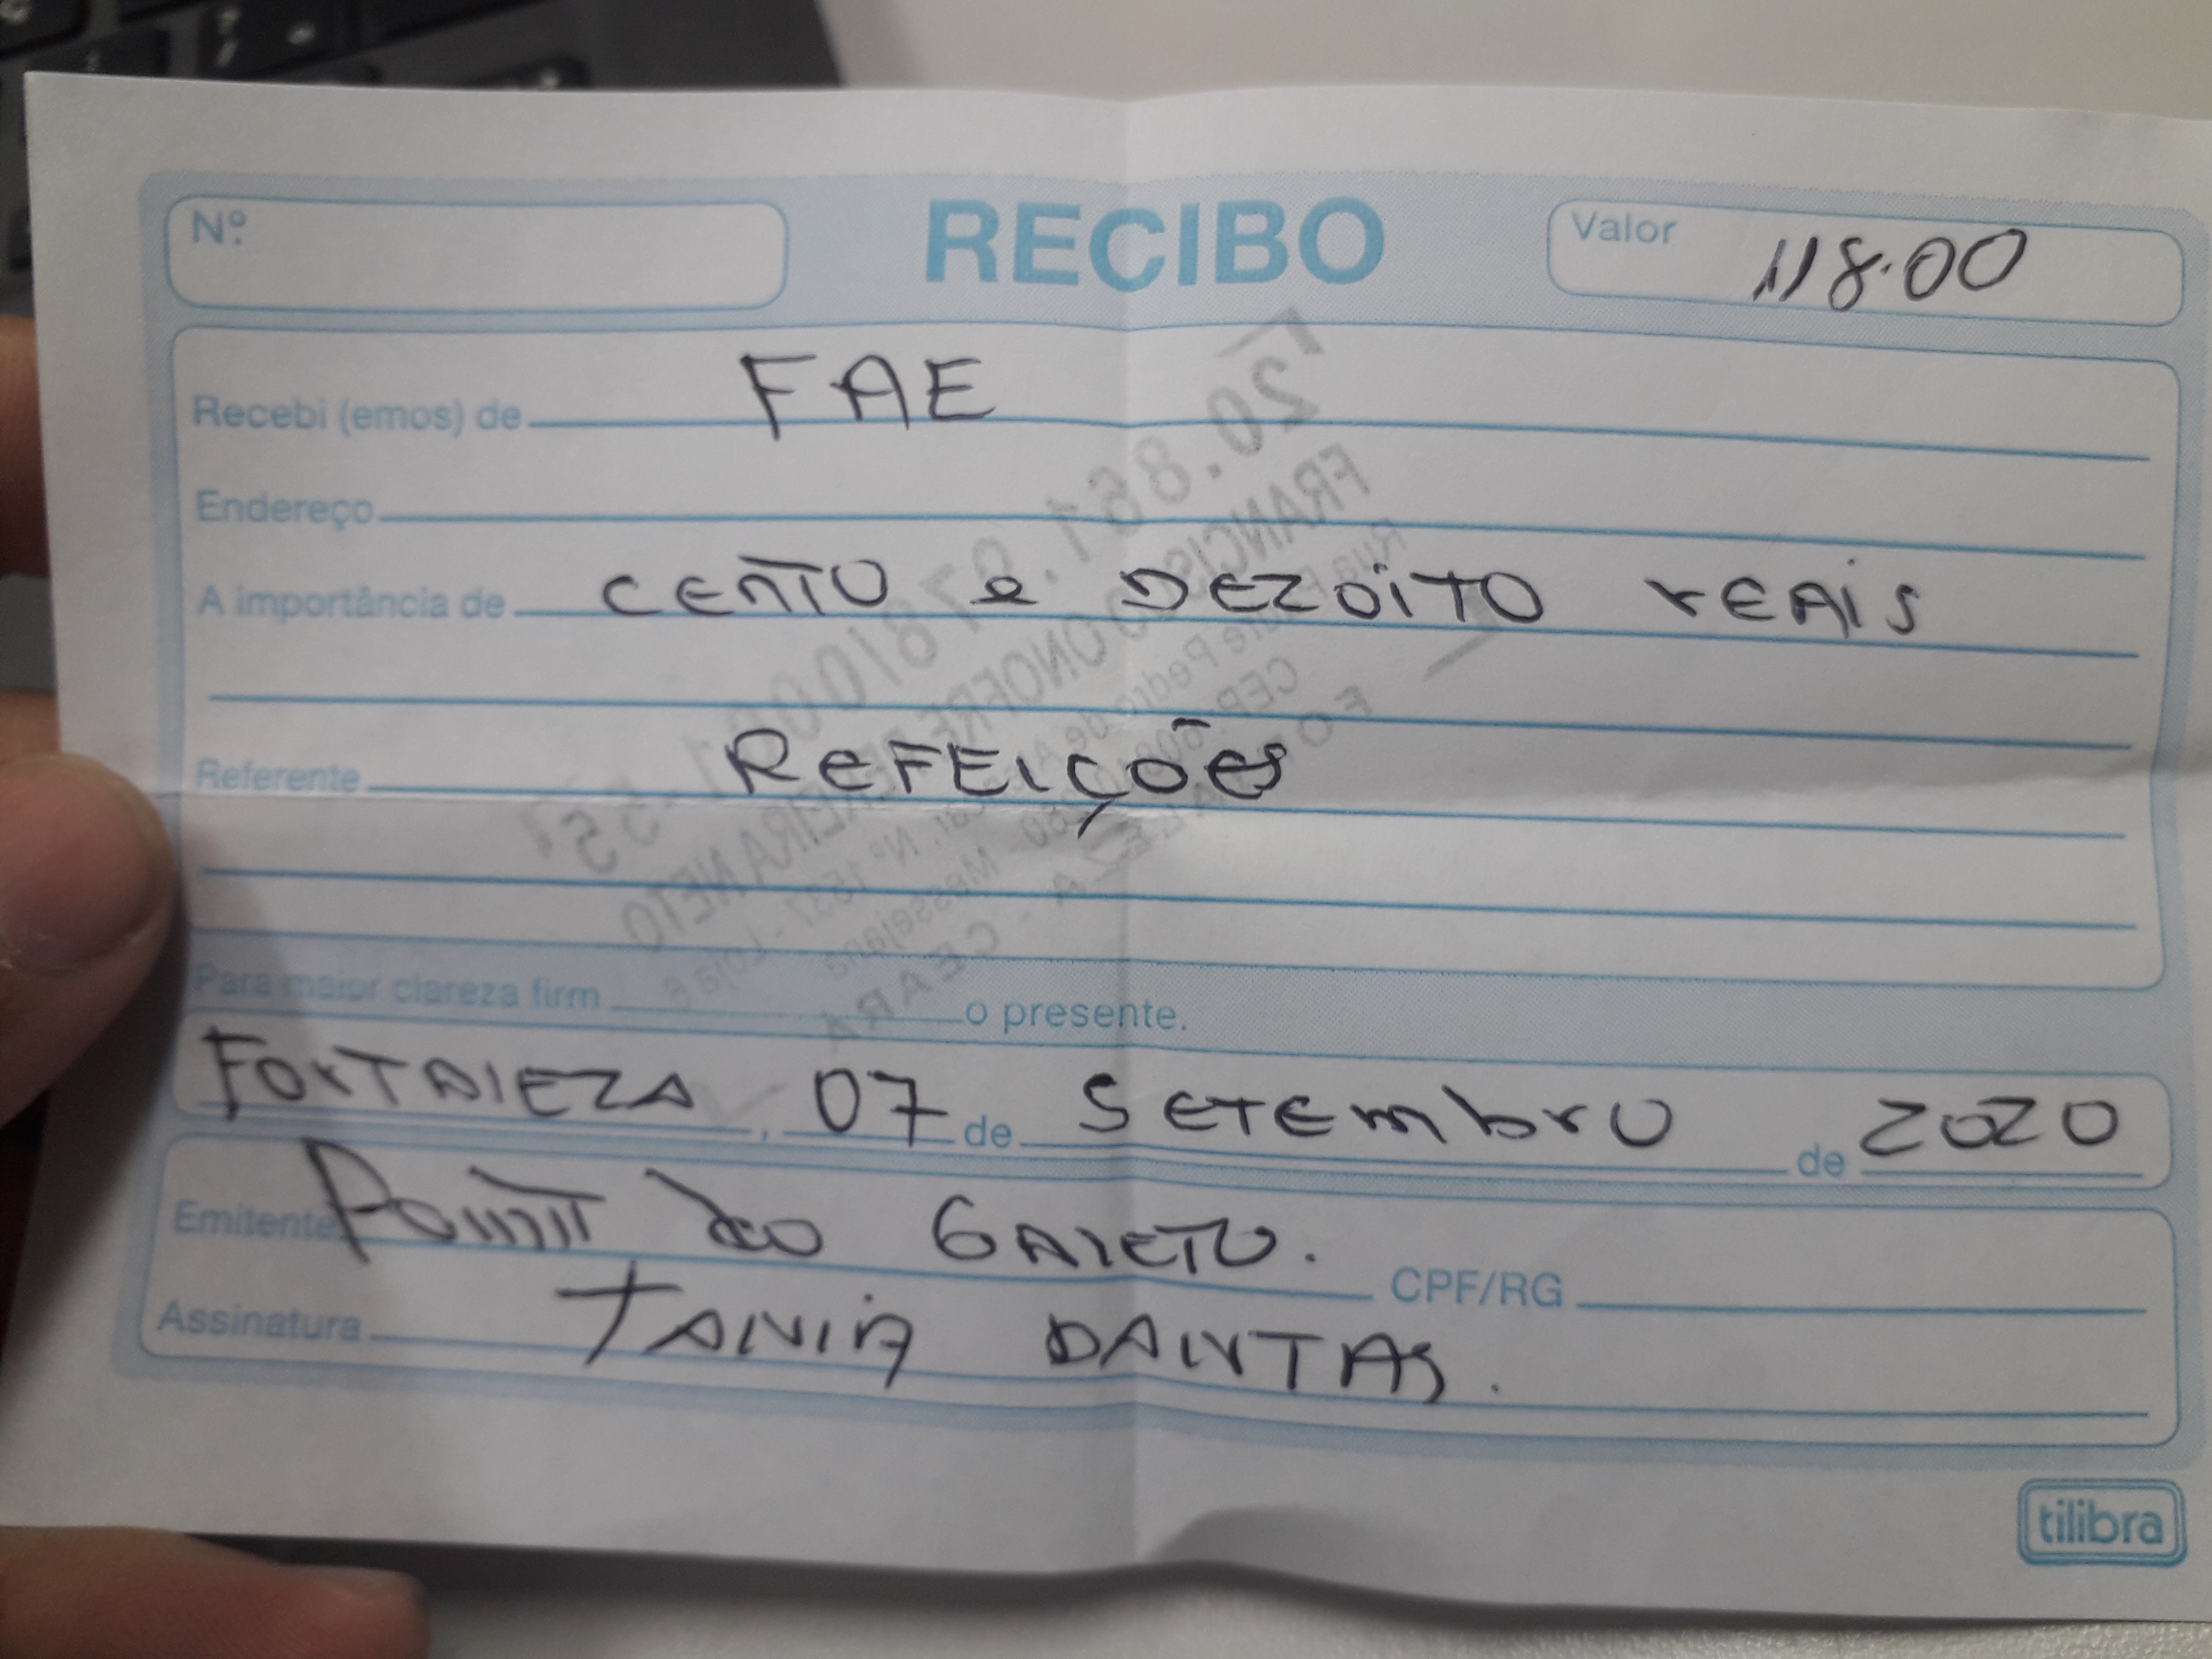 Nº
RECIBO
Valor 118.00
Recebi (emos) de FAE
Endereço
A importância de CENTO e DEZOITO reais
Referente REFEIÇÕES
Para maior clareza firm o presente.
FORTALEZA, 07 de SETEmbro de 2020
Emitente Point do GALETO.
CPF/RG
Assinatura TANIA DANTAS.
tilibra
20.861.978/0001-55
FRANCISCO ONOFRE TEIXEIRA NETO
Rua Padre Pedro de Alencar, Nº 1537 - Loja 6
Messejana
FORTALEZA - CEARÁ